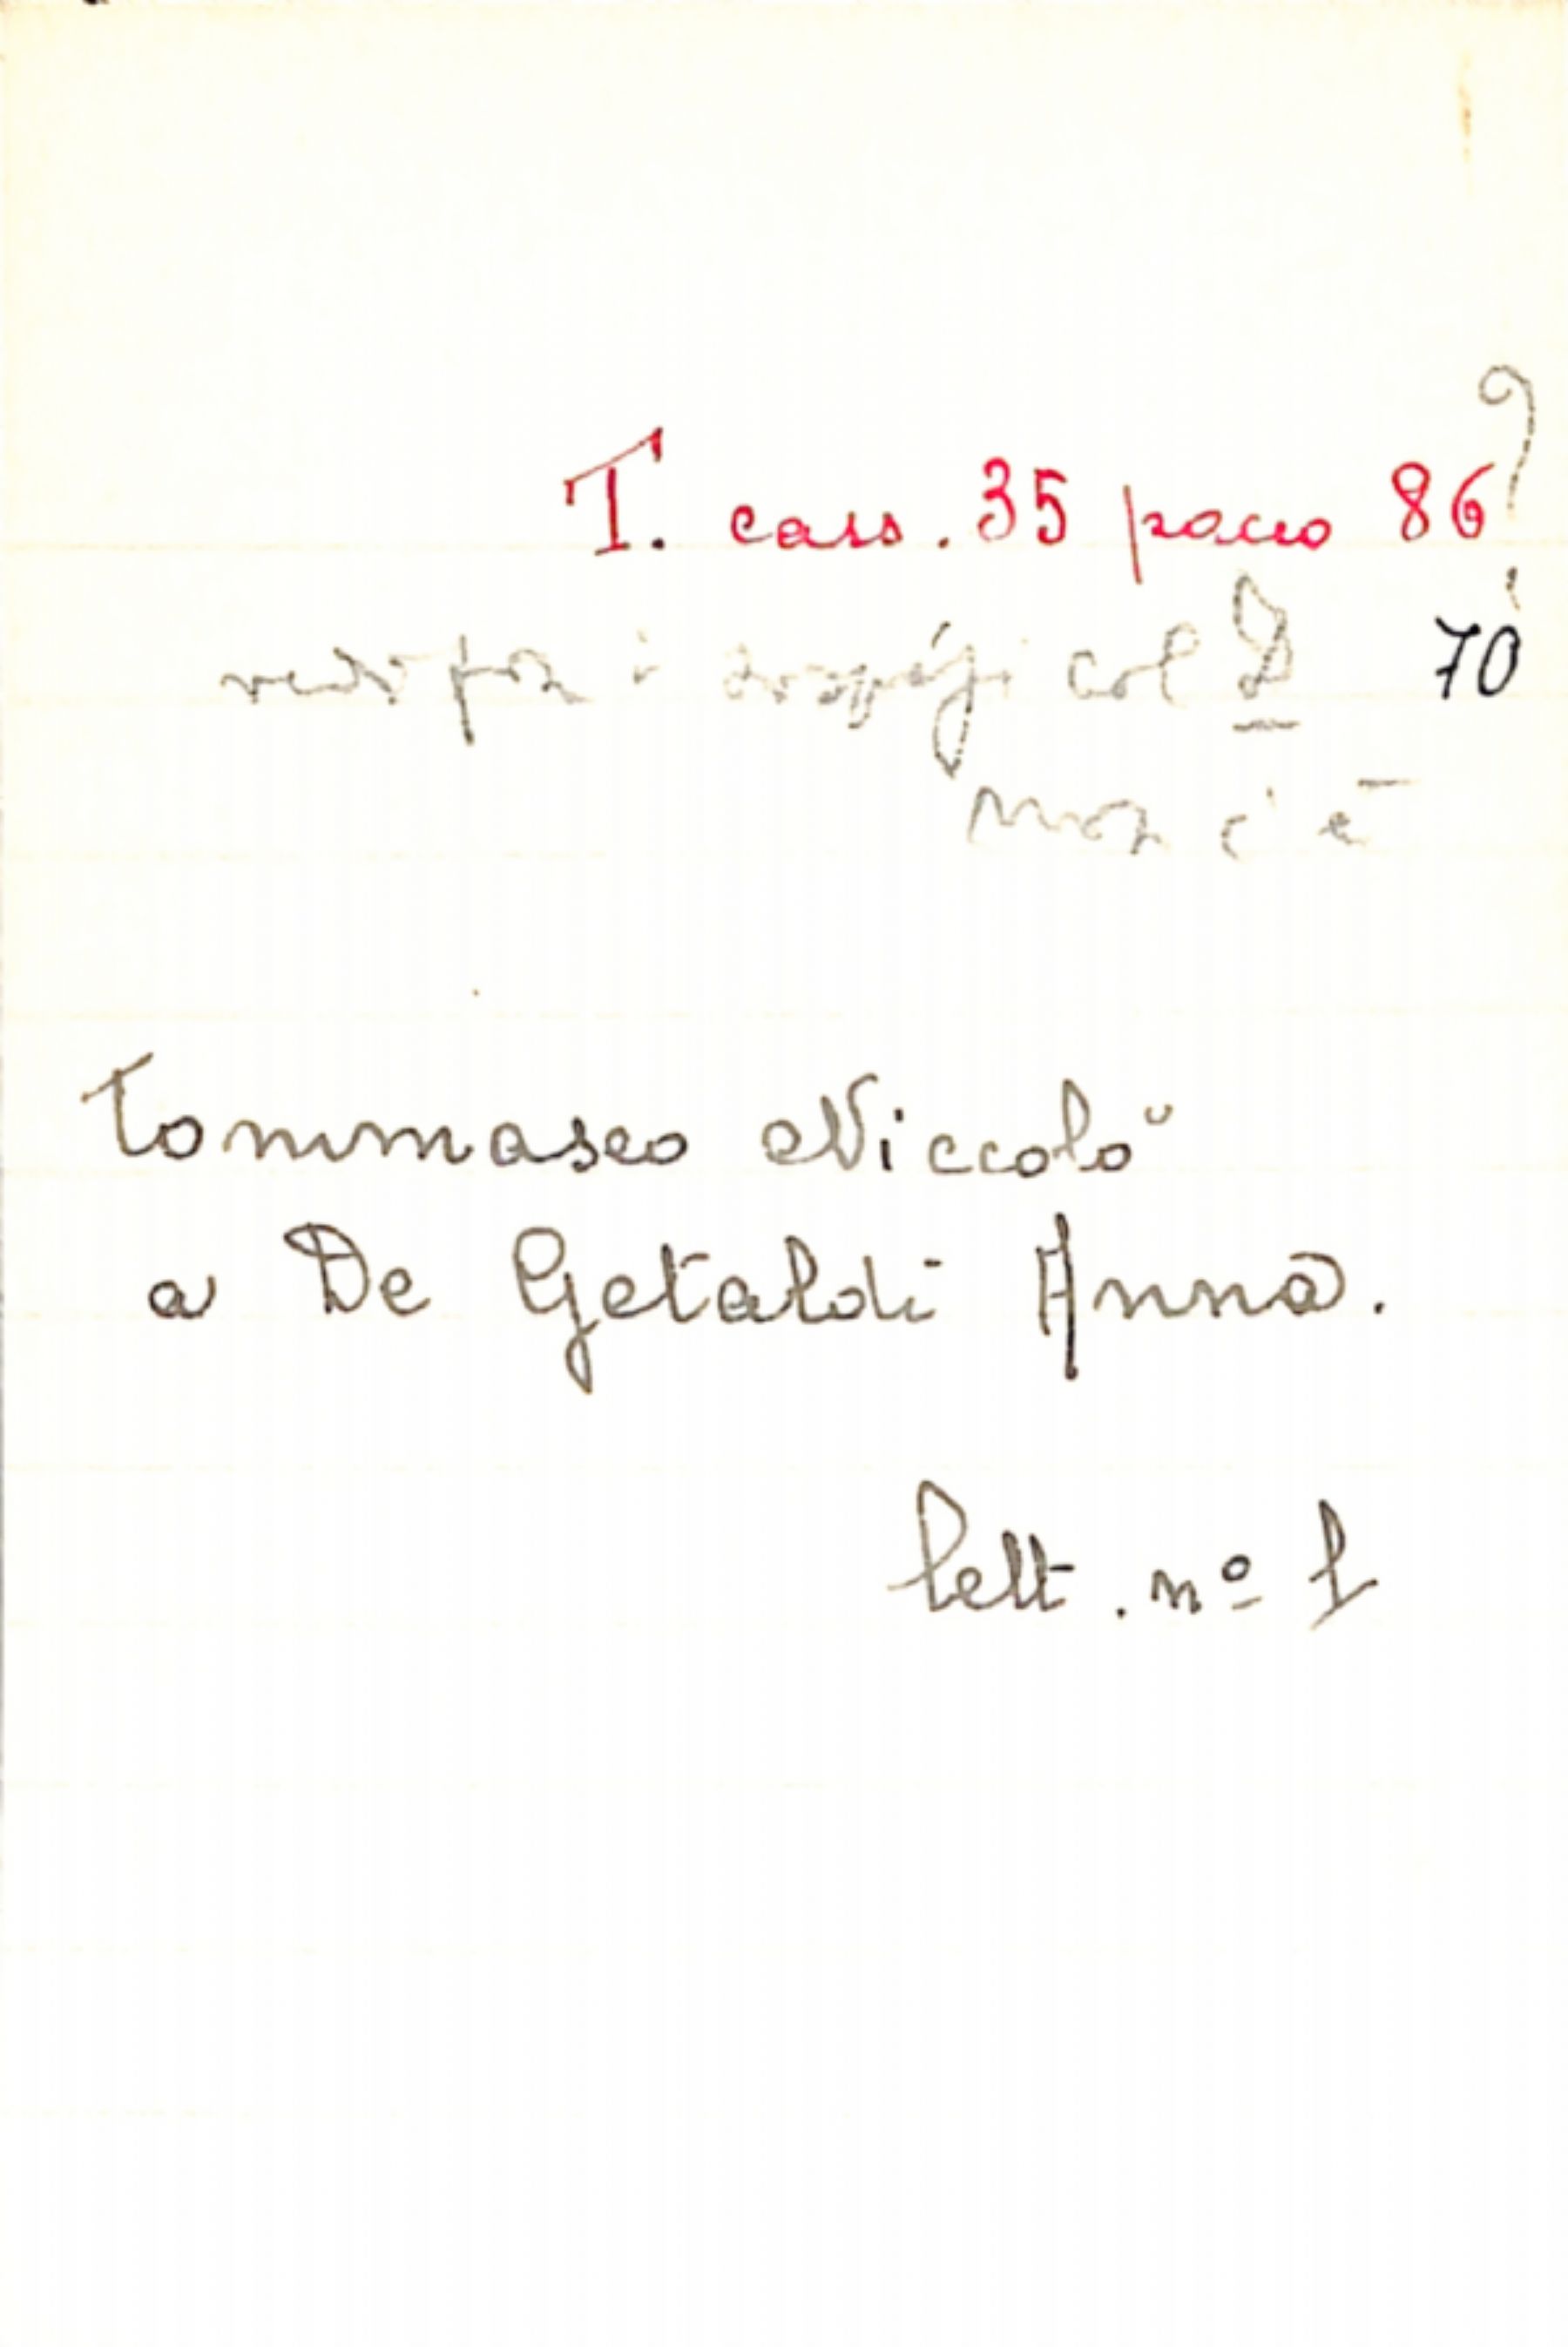 T. cass. 35 pacco 86?
vedi fra i doppi col D 70
non c'è
Tommaseo Niccolò
a De Getaldi Anna.
lett. nº 1